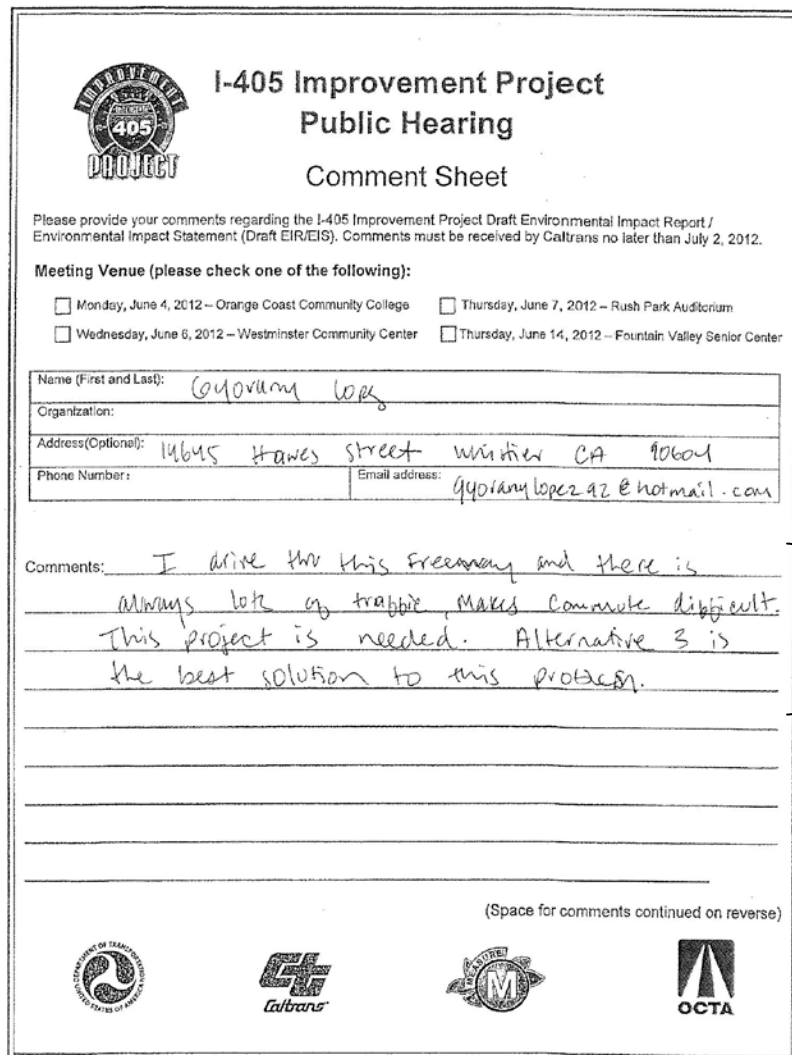 IMPROVEMENT
405
PROJECT
I-405 Improvement Project
Public Hearing
Comment Sheet
Please provide your comments regarding the I-405 Improvement Project Draft Environmental Impact Report /
Environmental Impact Statement (Draft EIR/EIS). Comments must be received by Caltrans no later than July 2, 2012.
Meeting Venue (please check one of the following):
Monday, June 4, 2012 – Orange Coast Community College
Thursday, June 7, 2012 – Rush Park Auditorium
Wednesday, June 6, 2012 – Westminster Community Center
Thursday, June 14, 2012 – Fountain Valley Senior Center
Name (First and Last): Gyorany Lopez
Organization:
Address(Optional): 14645 Hawes Street Whittier CA 90604
Phone Number:
Email address: gyoranylopez92@hotmail.com
Comments: I drive thru this freeway and there is
always lots of traffic, makes commute difficult.
This project is needed. Alternative 3 is
the best solution to this problem.
(Space for comments continued on reverse)
DEPARTMENT OF TRANSPORTATION
UNITED STATES OF AMERICA
Caltrans
MEASURE
M
OCTA